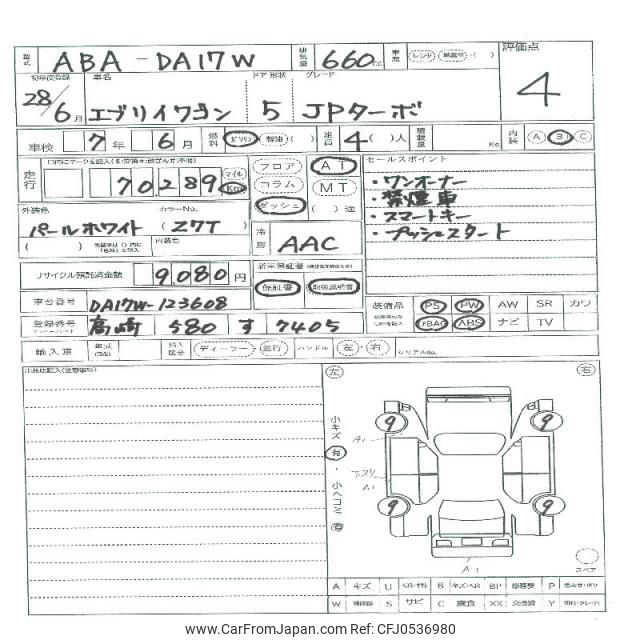 型式 ABA - DA17W 排気量 660cc 車歴 レンタ ( ) 評価点
初年度登録 車名 ドア 形状 グレード
28/6月 エブリイワゴン 5 JPターボ 4
車検 7年 6月 燃料 ガソリン 軽油 ( ) 定員 4( )人 積載量 Kg 内装 A B C
走行 70289 マイル Km フロア AT セールスポイント
コラム MT ・ワンオーナー
外装色 カラーNo. ダッシュ ( )速 ・禁煙車
パールホワイト (Z7T) ・スマートキー
( ) 内装色 冷房 AAC ・プッシュスタート
リサイクル預託済金額 9,080円 新車保証書
保証書 取扱説明書
車台番号 DA17W-123608 装備品 PS PW AW SR カワ
登録番号 高崎 580 す 7405 ABS ナビ TV
輸入車 年式 ディーラー・並行 ハンドル 左・右 シリアルNo.
左 右
小キズ 有・小ヘコミ
9 9
A1
下スリ
A1
9 9
A1
スペア
A キズ U B キズ・ヘコミ BP P
W S サビ C 腐食 XX 交換済 Y
© CarFromJapan.com REF CFJ0536980